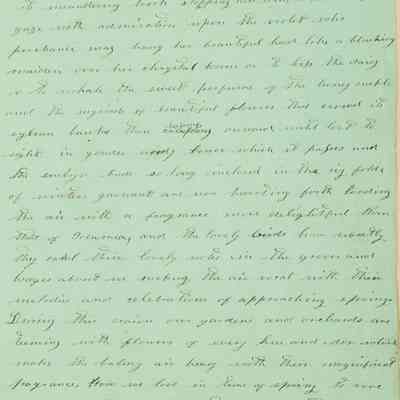 its meandering
gaze with admiration upon the violet who
perchance may hang her beautiful head like a blushing
maiden over her chrystal home or to kiss the daisy
or to inhale the sweet perfume of the living
and the myriads of beautiful flowers that crowd its
banks then onward until lost to
sight in yonder woody bower which it passes and
the embryo buds so long enclosed in the icy folds
of winters garment are now bursting forth loading
the air with a fragrance more delightful than
that of and the lovely birds how sweetly
they the lovely notes in the groves and
about us making the air vocal with their
melodies and celebration of approaching spring
During this season our gardens and orchards are
teeming with flowers of every hue and odor which
make the air heavy with their magnificent
fragrance How we love in time of spring to rove